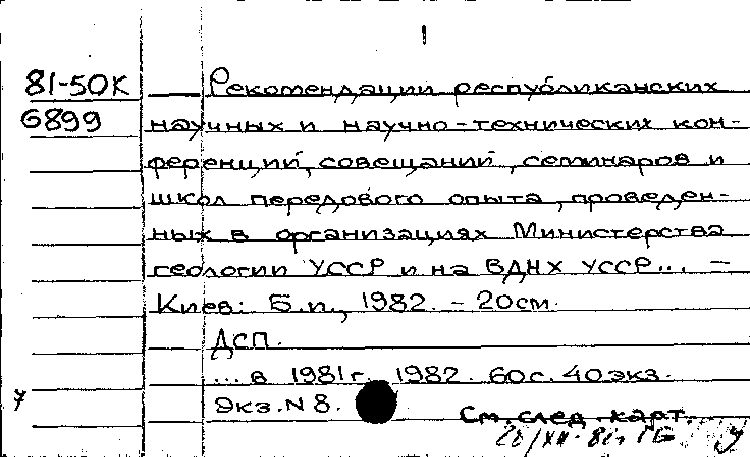 1
81-50К Рекомендации республиканских
6899 научных и научно-технических кон-
ференций, совещаний, семинаров и
школ передового опыта, проведен-
ных в организациях Министерства
геологии УССР и на ВДНХ УССР... –
Киев: Б.и., 1982. – 20см.
ДСП.
... в 1981г. 1982. 60с. 40экз.
Экз. N 8.
См. след. карт.